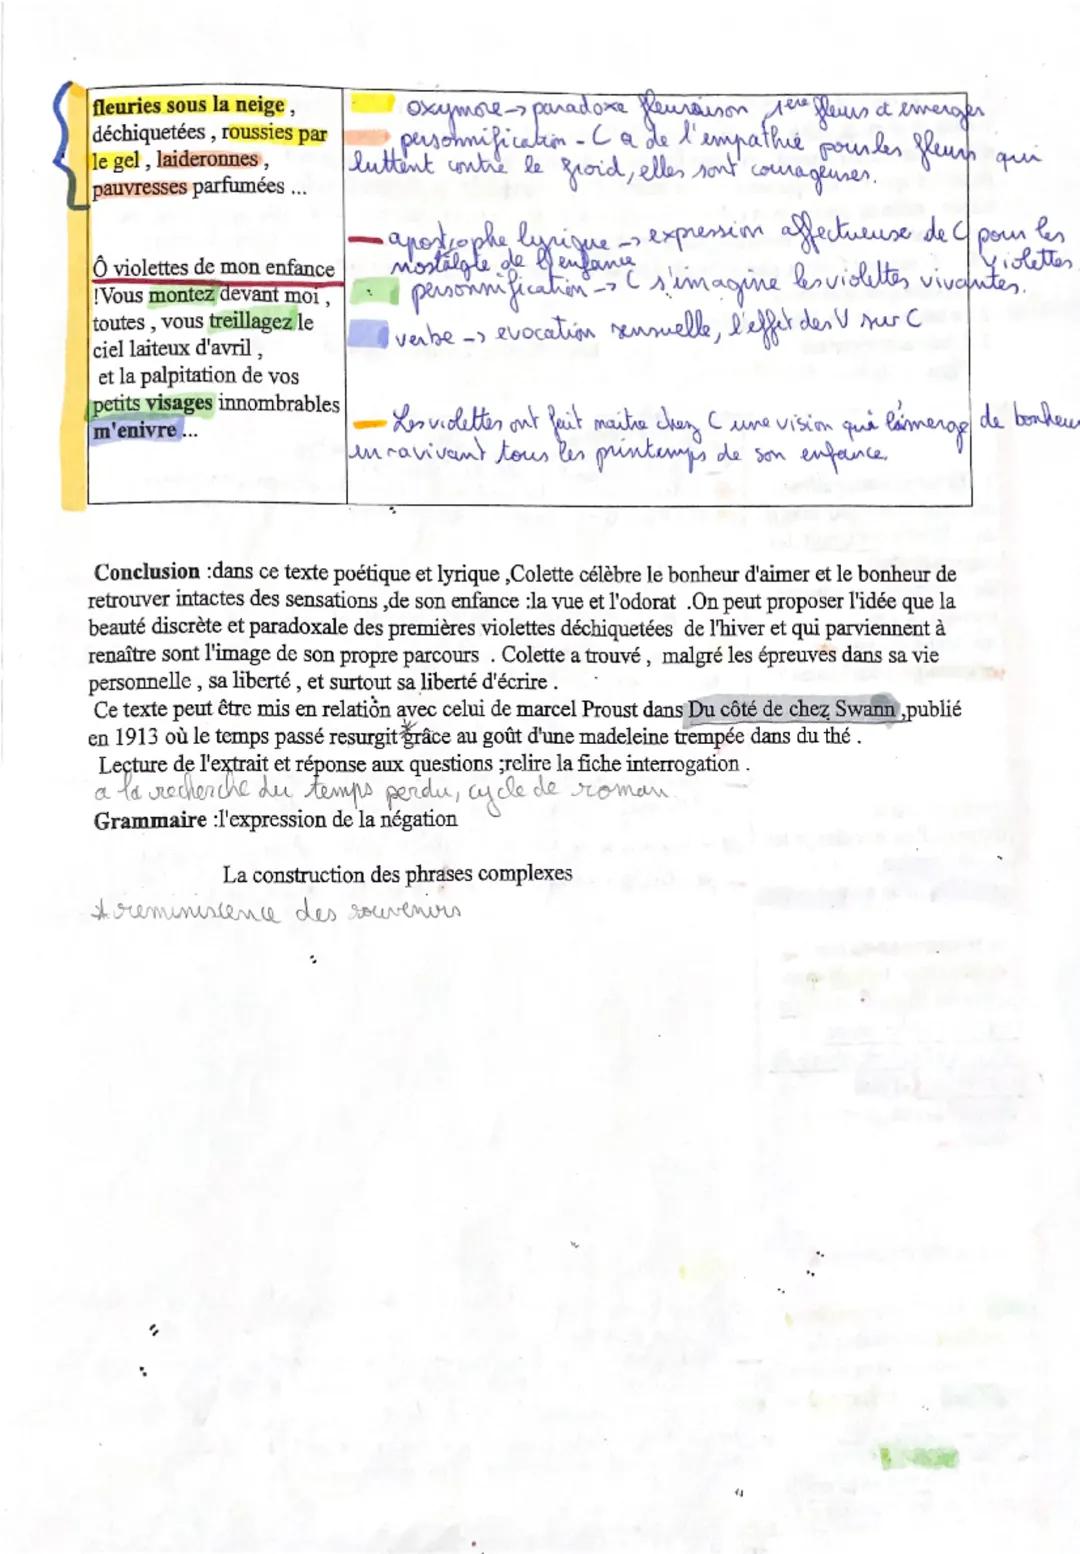 fleuries sous la neige ,
déchiquetées , roussies par
le gel , laideronnes ,
pauvresses parfumées ...
Ô violettes de mon enfance
!Vous montez devant moi ,
toutes , vous treillagez le
ciel laiteux d'avril ,
et la palpitation de vos
petits visages innombrables
m'enivre ...
oxymore -> paradoxe fleuraison 1ère fleurs à émerger
personnification - C a de l'empathie pour les fleurs qui
luttent contre le froid, elles sont courageuses.
apostrophe lyrique -> expression affectueuse de C pour les
violettes
nostalgie de l'enfance
personnification -> C s'imagine les violettes vivantes.
verbe -> evocation sensuelle, l'effet des V sur C
Les violettes ont fait naître chez C une vision qui de bonheur
en ravivant tous les printemps de son enfance,
Conclusion :dans ce texte poétique et lyrique ,Colette célèbre le bonheur d'aimer et le bonheur de
retrouver intactes des sensations ,de son enfance :la vue et l'odorat .On peut proposer l'idée que la
beauté discrète et paradoxale des premières violettes déchiquetées de l'hiver et qui parviennent à
renaître sont l'image de son propre parcours . Colette a trouvé , malgré les épreuves dans sa vie
personnelle , sa liberté , et surtout sa liberté d'écrire .
Ce texte peut être mis en relation avec celui de marcel Proust dans Du côté de chez Swann ,publié
en 1913 où le temps passé resurgit *grâce au goût d'une madeleine trempée dans du thé .
Lecture de l'extrait et réponse aux questions ;relire la fiche interrogation .
a la recherche du temps perdu, cycle de roman.
Grammaire :l'expression de la négation
La construction des phrases complexes
* reminiscence des souvenirs